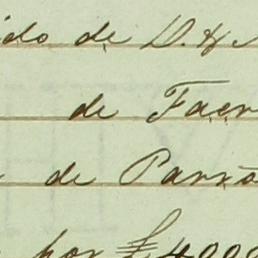 ido de D. H. A
de Faer
de Parra
por $ 4000